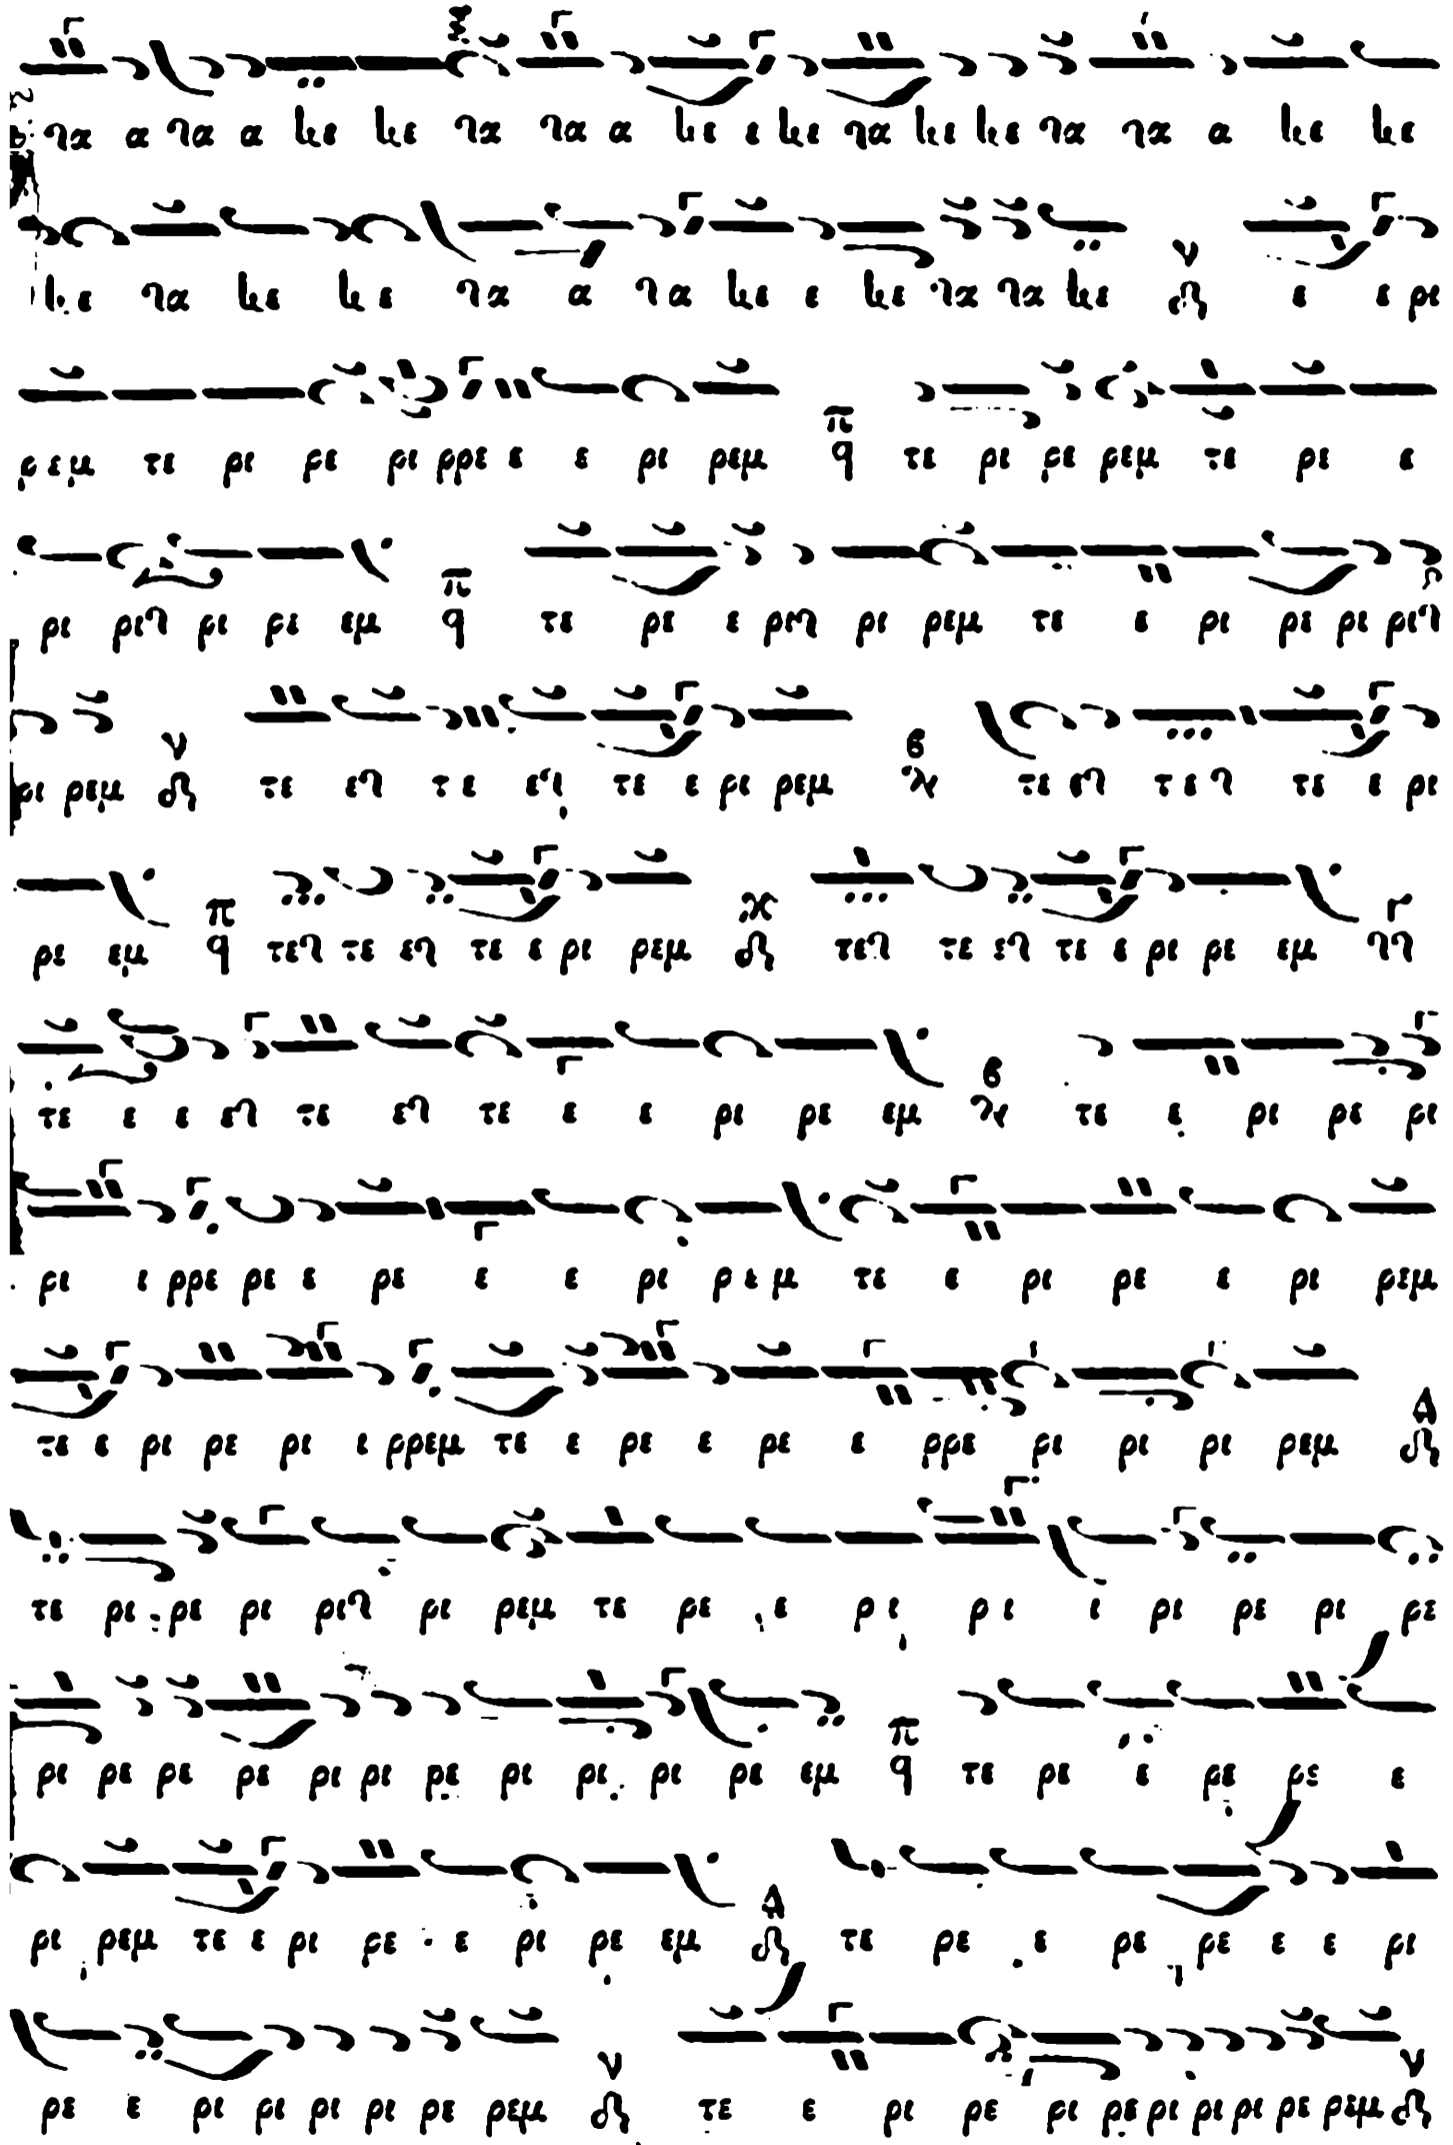 γα α γα α κε κε γα γα α κε ε κε γα κε κε γα γα α κε κε
κε γα κε κε γα α γα κε ε κε γα γα κε ν ε ε ρι
ρεμ τε ρι ρε ρι ρρε ε ε ρι ρεμ π q τε ρι ρε ρεμ τε ρι ε
ρι ριγ ρι ρε εμ π q τε ρε ε ριγ ρι ρεμ τε ε ρι ρε ρι ριγ
ρι ρεμ ν τε εγ τε εγ τε ε ρι ρεμ β τε εγ τεγ τε ε ρι
ρε εμ π q τεγ τε εγ τε ε ρι ρεμ τεγ τε εγ τε ε ρι ρε εμ Γ
τε ε ε εγ τε εγ τε ε ε ρι ρε εμ β τε ε ρι ρε ρι
ρι ι ρρε ρε ε ρε ε ε ρι ρεμ τε ε ρι ρε ε ρι ρεμ
τε ε ρι ρε ρι ι ρρεμ τε ε ρε ε ρε ε ρρε ρι ρι ρι ρεμ Δ
τε ρι ρε ρι ριγ ρι ρεμ τε ρε ε ρι ρι ι ρι ρε ρι ρε
ρι ρε ρε ρε ρι ρι ρε ρι ρι ρι ρε εμ π q τε ρε ε ρε ρε ε
ρι ρεμ τε ε ρι ρε ε ρι ρε εμ Δ τε ρε ε ρε ρε ε ε ρι
ρε ε ρι ρι ρι ρι ρε ρεμ ν τε ε ρι ρε ρι ρε ρι ρι ρι ρε ρεμ ν